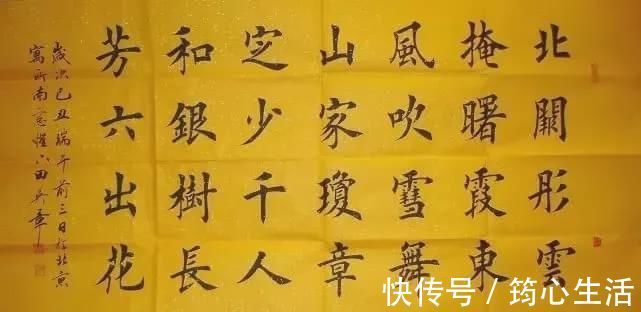 北闕彤雲
掩曙霞東
風吹雪舞
山家瓊章
定少千人
和銀樹長
芳六出花
歲次己丑端午前三日於北京
寓所南窓燈下田英章
快传号 / 筠心生活